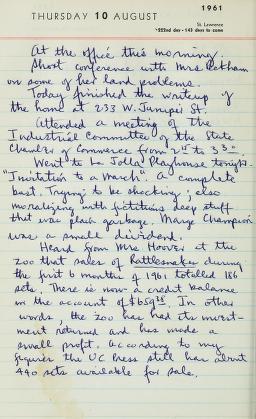 1961
THURSDAY 10 AUGUST
St. Lawrence
222nd day - 143 days to come
At the office this morning.
Short conference with Mrs.
on some of her land problems.
Today finished the writeup of
the home at 233 W. Juniper St.
Attended a meeting of the
Industrial Committee of the State
Chamber of Commerce from 2 to 3
Went to La Jolla Playhouse tonight.
"Invitation to a March". A complete
bust. Trying to be shocking; also
moralizing with fictitious deep stuff
that was plain garbage. Marge Champion
was a small dividend.
Heard from Mrs Hoover at the
zoo that sales of Rattlesnakes during
the first 6 months of 1961 totalled 186
sets. There is now a credit balance
in the account of In other
words, the zoo has had its invest-
ment returned and has made a
small profit. According to my
figures the UC Press still has about
440 sets available for sale.